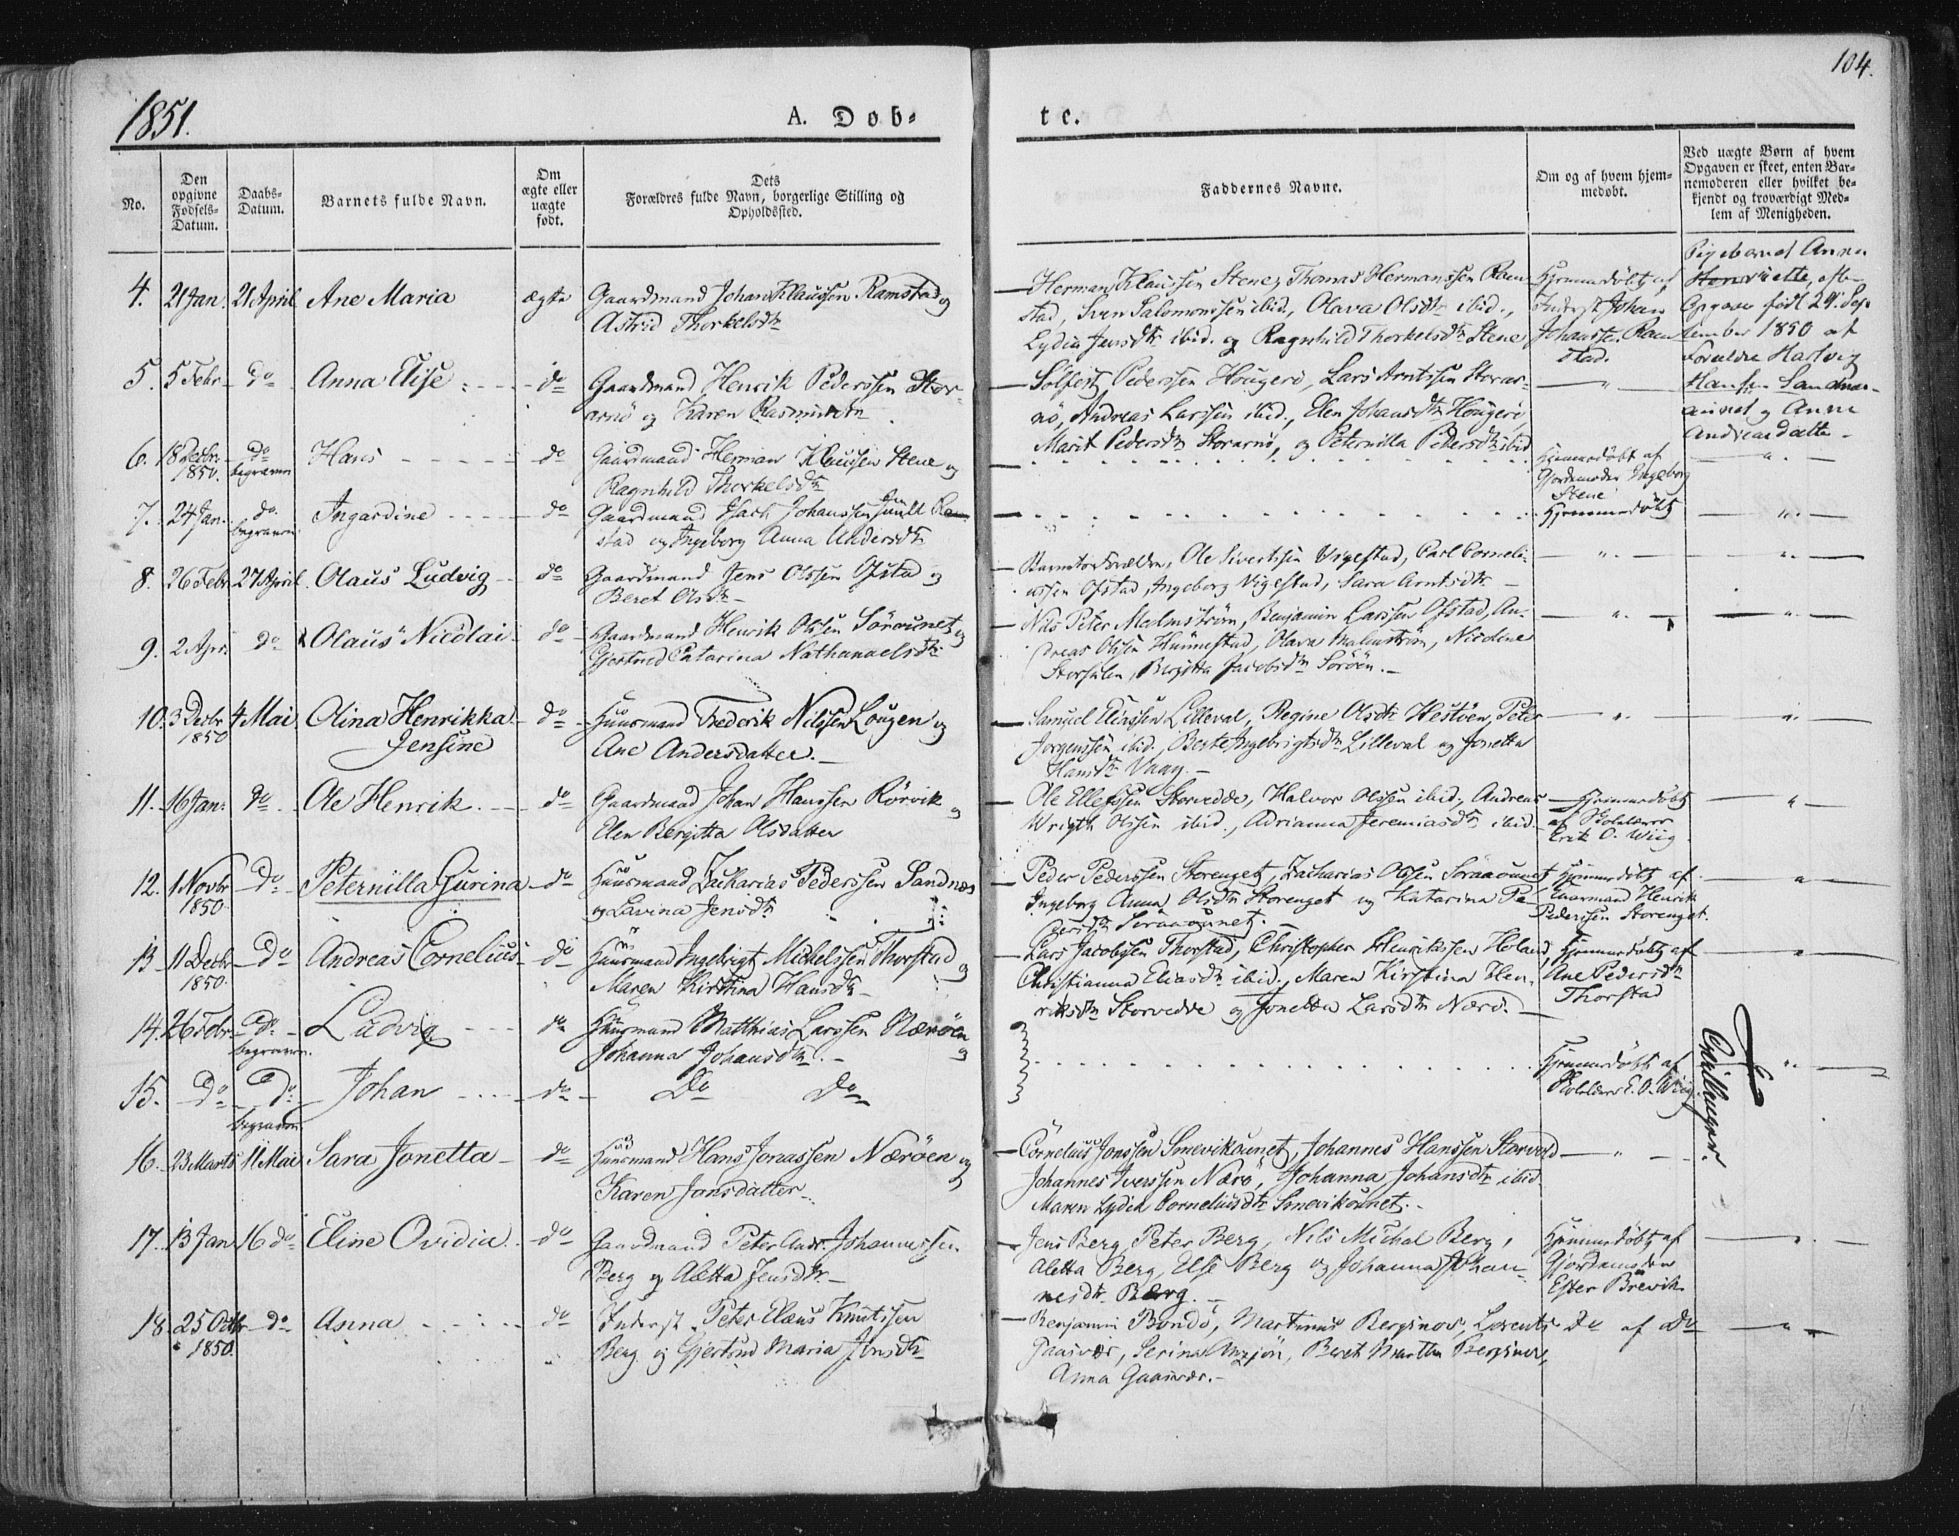 1851.
A. Døb-
te.
104.
No.
Den opgivne Fødsels-Datum.
Daabs-Datum.
Barnets fulde Navn.
Om ægte eller uægte født.
Dets
Forældres fulde Navn, borgerlige Stilling og
Opholdssted.
Faddernes Navne.
Om og af hvem hjem-
medøbt.
Ved uægte Børn af hvem
Opgaven er skeet, enten Bar-
nemoderen eller hvilket be-
kjendt og troværdigt Med-
lem af Menigheden.
4. 21 Jan. 21 April Ane Maria ægte Gaardmand Johan Klaussen Ramstad og
Astrid Thorkelsdtr
Herman Klaussen Stene, Thomas Hermanssen Ram-
stad, Sven Salomonssen ibid., Olava Olsdtr ibid.,
Lydia Jensdtr ibid. og Ragnhild Thorkelsdtr Stene
Hjemmedøbt af
Inderst Johan
Johanssen Ram-
stad.
Pigebarnet Anna
Henriette, efter
Opgave født 29. Sep-
tember 1850 af
Forældre Hartvig
Hansen
og Anne
Andreasdatter
5. 5 Febr. do Anna Elise do Gaardmand Henrik Pederssen Stor-
arnø og Karen Rasmusdtr
Pederssen Hougerø, Lars Arntssen Storar-
nø, Andreas Larssen ibid., Elen Johansdtr Hougerø,
Marit Pedersdtr Storarnø, og Peternilla Pedersdtr ibid
6. 18 Decbr. 1850. do begraven Hans do Gaardmand Herman Klaussen Stene og
Ragnhild Thorkelsdtr
Hjemmedøbt af
Gjordemoder Ingeborg
Stene
7. 24 Jan. do begraven Ingardine do Gaardmand Isach Johanssen Ram-
stad og Ingeborg Anna Andersdtr
Hjemmedøbt
8. 26 Febr. 27 April Olaus Ludvig do Gaardmand Jens Olssen Ofstad og
Beret Olsdtr
Ole Sivertsen Vigestad, Carl Corneli-
ussen Ofstad, Ingeborg Vigestad, Sara Arntsdtr
9. 2 Apr. do Olaus Nicolai do Gaardmand Henrik Olssen Sørøunet og
Gjertrud Catarina Nathanaelsdtr
Nils Peter Malmstrøm, Benjamin Larssen Ofstad, An-
dreas Olsen Hunnestad, Olava Malmstrøm, Nicoline
Birgitta Jacobsdtr Sørøen.
10. 3 Decbr 1850 4 Mai Olina Henrikka
Jensine do Huusmand Frederik Nilssen Lougen og
Ane Andersdatter.
Samuel Eliassen Lilleval, Regine Olsdtr Hestøen, Peter
Jørgenssen ibid., Berte Ingebrigtsdtr Lilleval og Jonetta
Hansdtr Vaag.
11. 16 Jan. do Ole Henrik do Gaardmand Johan Hanssen Rørvik og
Elen Bergitta Olsdatter
Ole Ellefssen Storvedde, Halvor Olssen ibid., Andreas
Wrigth Olssen ibid., Adrianna Jeremiasdtr ibid
Hjemmedøbt
af Skolelærer
Erik O. Wiig
12. 1 Novbr 1850 do Peternilla Gurina do Huusmand Zacharias Pederssen Sandnes
og Lavina Jensdtr
Peder Pederssen Storenget, Zacharias Olssen Søraaunet
Ingeborg Anna Olsdtr Storenget og Katarina Pe-
dersdtr Søraaunet.
Hjemmedøbt af
Gaardmand Henrik
Pederssen Storenget.
13 11 Decbr 1850. do Andreas Cornelius do Huusmand Ingebrigt Michelssen Thorstad og
Maren Kirstina Hansdtr
Lars Jacobssen Thorstad, Christopher Henrikssen Høland,
Christianna Eliasdtr ibid., Maren Kirstina Hen-
riksdtr Storvedde og Jonetta Larsdtr Nærø.
Hjemmedøbt af
Ane Pedersdtr
Thorstad
14. 26 Febr do begraven. Ludvig do Huusmand Matthias Larssen Nærøen og
Johanna Johansdtr.
Hjemmedøbt af
Skolelærer E. O. Wiig
15. do do begraven Johan do Do Do
16. 23 Marts 11 Mai Sara Jonetta do Huusmand Hans Jonassen Nærøen og
Karen Jonsdatter
Cornelius Jonssen Smevikøunet, Johannes Hanssen Storvold
Johannes Iverssen Nærø, Johanna Johansdtr ibid
Maren Lydia Corneliusdtr Smevikøunet.
17. 13 Jan 16 do Eline Ovidia do Gaardmand Peter Andr. Johannessen
Berg og Aletta Jensdtr
Jens Berg, Peter Berg, Nils Michal Berg,
Aletta Berg, Else Berg og Johanna Johan-
nesdtr Berg.
Hjemmedøbt af
Gjordemoder
Ester Brevik
18. 25 Octbr 1850. do Anna do Inderst Peter Elaus Knutssen
Berg og Gjertrud Maria Jonsdtr
Benjamin Bondø, Martinus Berginos, Lorents
Gaasvær, Serina Beret Martha
Anna Gaasvær.
Do af Do